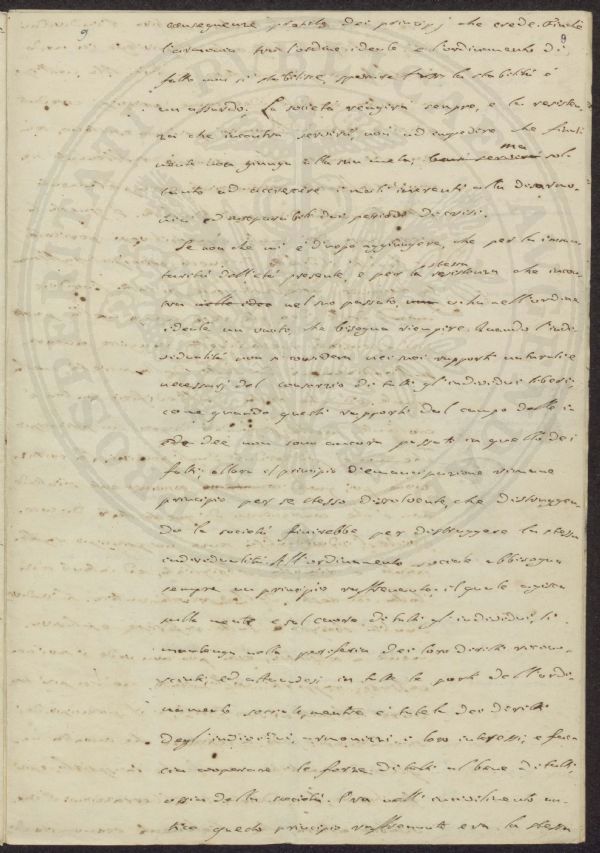 9
9
conseguenze pratiche dei principj che crede. Finchè
l'armonia tra l'ordine ideale e l'ordinamento di
fatto non si stabilisce, sperare la stabilità è
un assurdo. La società reagirà sempre, e la resisten-
za che incontra servirà, non ad impedire che final-
mente non giunga alla sua meta; ma sol-
tanto ad accrescere i mali inerenti alla disarmo-
nia ed inseparabili dai periodi di crisi.
Se non che mi è d'uopo aggiungere, che per la imma-
turità dell'età presente, e per la stessa resistenza che incon-
tra nel suo passato, vi ha nell'ordine
ideale un vuoto, che bisogna riempire. Quando l'indi-
vidualità non si considera nei suoi rapporti naturali e
necessarj del consorzio di tutti gl'individui liberi;
come quando questi rapporti dal campo delle i-
dee non sono ancora passati in quello dei
fatti; allora il principio d'emancipazione rimane
principio per se stesso dissolvente, che distruggen-
do la società finirebbe per distruggere la stessa
individualità. All'ordinamento sociale abbisogna
sempre un principio raffrenante, il quale agisca
sulla mente e sul cuore di tutti gl'individui, li
mantenga nella periferia dei loro diritti ricono-
sciuti, ed attuandosi in tutte le parti dell'ordi-
namento sociale, mentre è tutela dei diritti
degli individui, armonizzi i loro interessi, e fac-
cia cooperare le forze di tutti al bene di tutti,
ossia della società. Era nell'incivilimento an-
tico questo principio raffrenante era la stessa